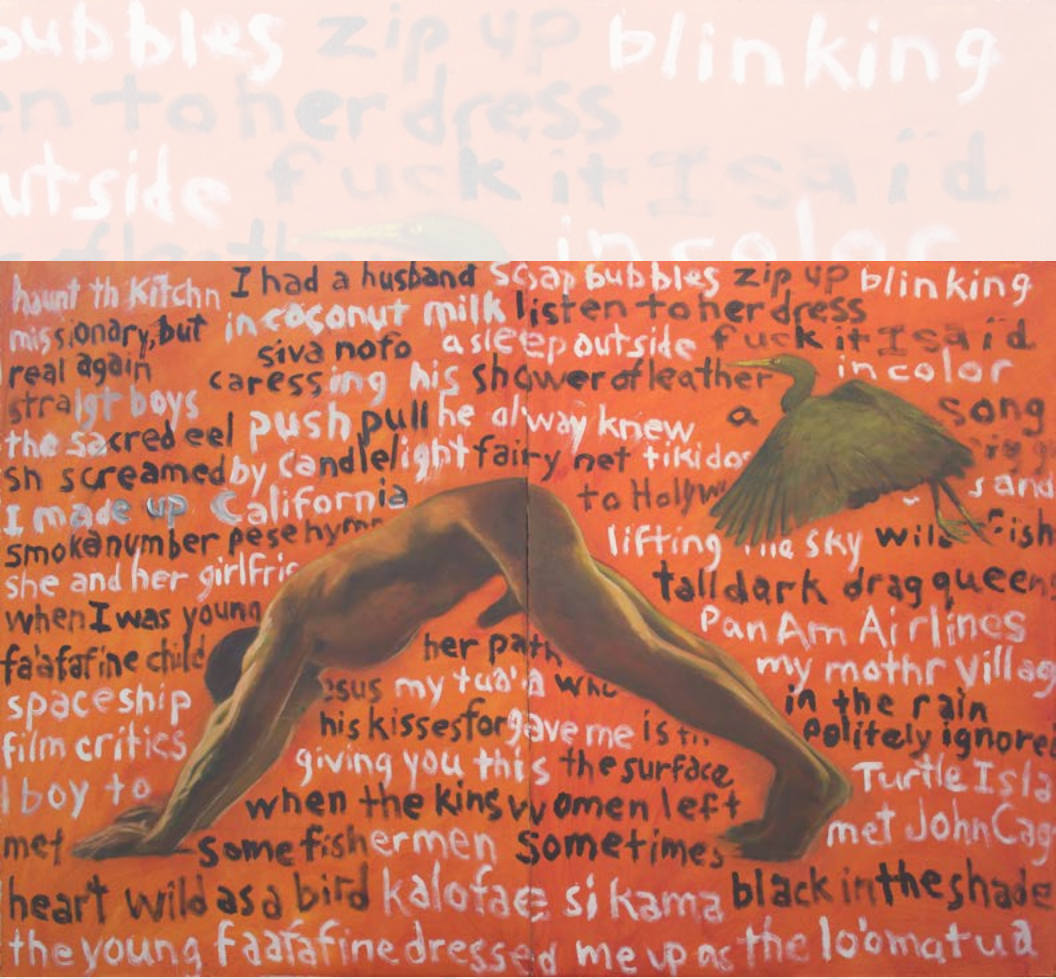 bubbles zip up blinking
en to her dress
utside fuck it I saïd
of leather in color
haunt th Kitchn I had a husband Soap bubbles zip up blinking
missionary, but in coconut milk listen to her dress
siva nofo asleep outside fuck it I saïd
real again caressing his shower of leather in color
straigt boys push pull he alway knew a song
the sacred eel
sh screamed by Candlelight fairy net
I made up California to Hollyw sand
smokanumber pese hymn lifting sky wild fish
she and her girlfrie tall dark drag queen
when I was young Pan Am Airlines
fa'afafine child her path my mothr villag
spaceship esus my tua'a in the rain
his kisses forgave me is politely ignore
film critics giving you this the surface Turtle Isla
boy to when the king women left met John Cag
met some fishermen Sometimes
heart wild as a bird kalofae si kama black in the shade
the young faafafine dressed me up as the lo'omatua